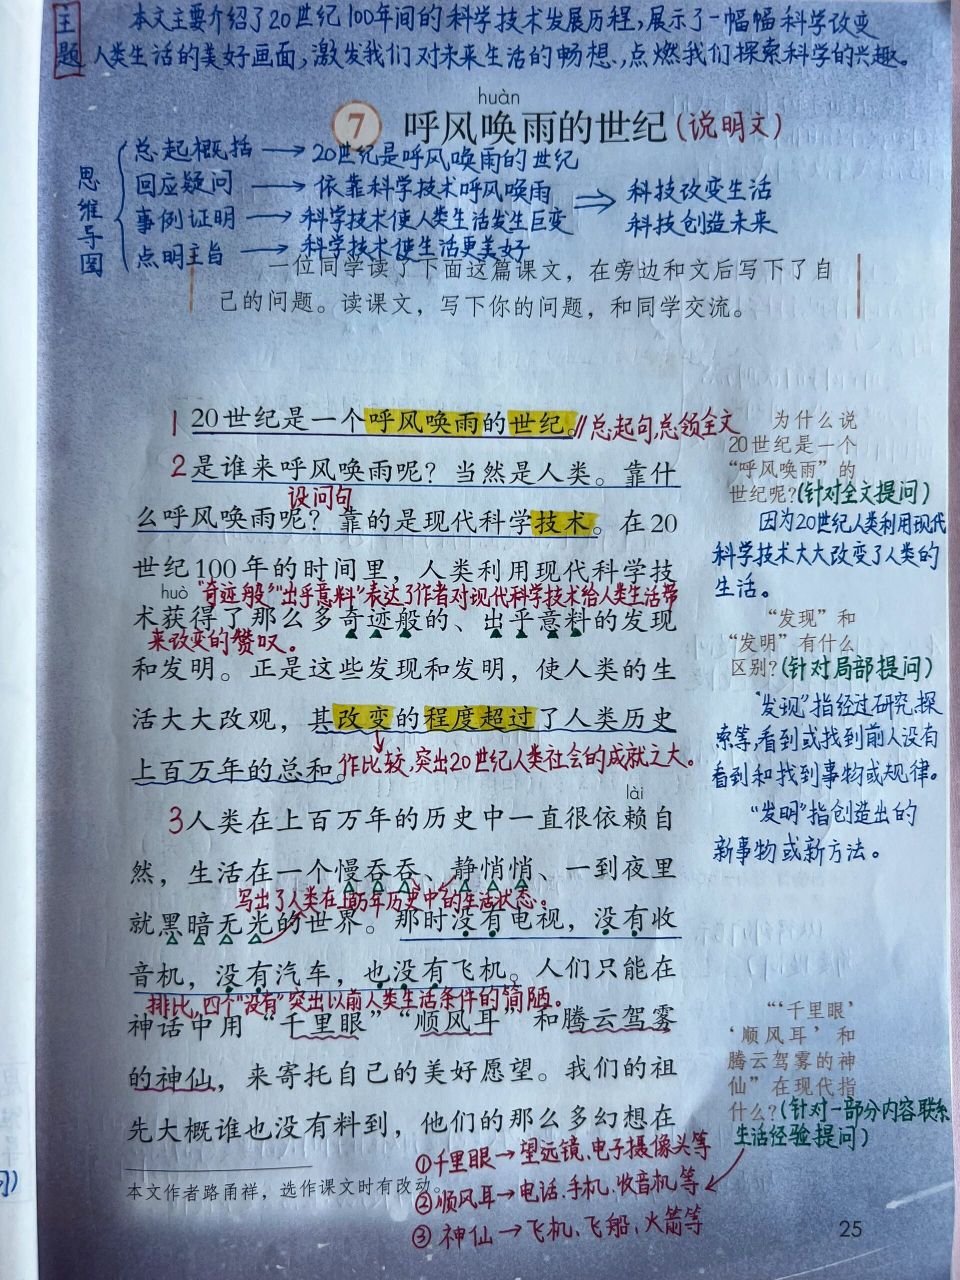 主题
本文主要介绍了20世纪100年间的科学技术发展历程,展示了一幅幅科学改变
人类生活的美好画面,激发我们对未来生活的畅想,点燃我们探索科学的兴趣。
huàn
7 呼风唤雨的世纪(说明文)
思维导图
总起概括→20世纪是呼风唤雨的世纪
回应疑问→依靠科学技术呼风唤雨
事例证明→科学技术使人类生活发生巨变
点明主旨→科学技术使生活更美好
⇒科技改变生活
科技创造未来
一位同学读了下面这篇课文，在旁边和文后写下了自
己的问题。读课文，写下你的问题，和同学交流。
1 20世纪是一个呼风唤雨的世纪。//总起句,总领全文
2是谁来呼风唤雨呢？当然是人类。靠什
设问句
么呼风唤雨呢？靠的是现代科学技术。在20
世纪100年的时间里，人类利用现代科学技
huò
"奇迹般""出乎意料"表达了作者对现代科学技术给人类生活带
术获得了那么多奇迹般的、出乎意料的发现
来改变的赞叹。
和发明。正是这些发现和发明，使人类的生
活大大改观，其改变的程度超过了人类历史
上百万年的总和。作比较,突出20世纪人类社会的成就之大。
lài
3人类在上百万年的历史中一直很依赖自
然，生活在一个慢吞吞、静悄悄、一到夜里
写出了人类在上百万年历史中的生活状态。
就黑暗无光的世界。那时没有电视，没有收
音机，没有汽车，也没有飞机。人们只能在
排比,四个"没有"突出以前人类生活条件的简陋。
神话中用“千里眼”“顺风耳”和腾云驾雾
的神仙，来寄托自己的美好愿望。我们的祖
先大概谁也没有料到，他们的那么多幻想在
本文作者路甬祥，选作课文时有改动。
①千里眼→望远镜、电子摄像头等
②顺风耳→电话、手机、收音机等
③神仙→飞机、飞船、火箭等
为什么说
20世纪是一个
“呼风唤雨”的
世纪呢?(针对全文提问)
因为20世纪人类利用现代
科学技术大大改变了人类的
生活。
“发现”和
“发明”有什么
区别?(针对局部提问)
"发现"指经过研究,探
索等,看到或找到前人没有
看到和找到事物或规律。
"发明"指创造出的
新事物或新方法。
“‘千里眼’
‘顺风耳’和
腾云驾雾的神
仙”在现代指
什么?(针对一部分内容联系
生活经验提问)
25